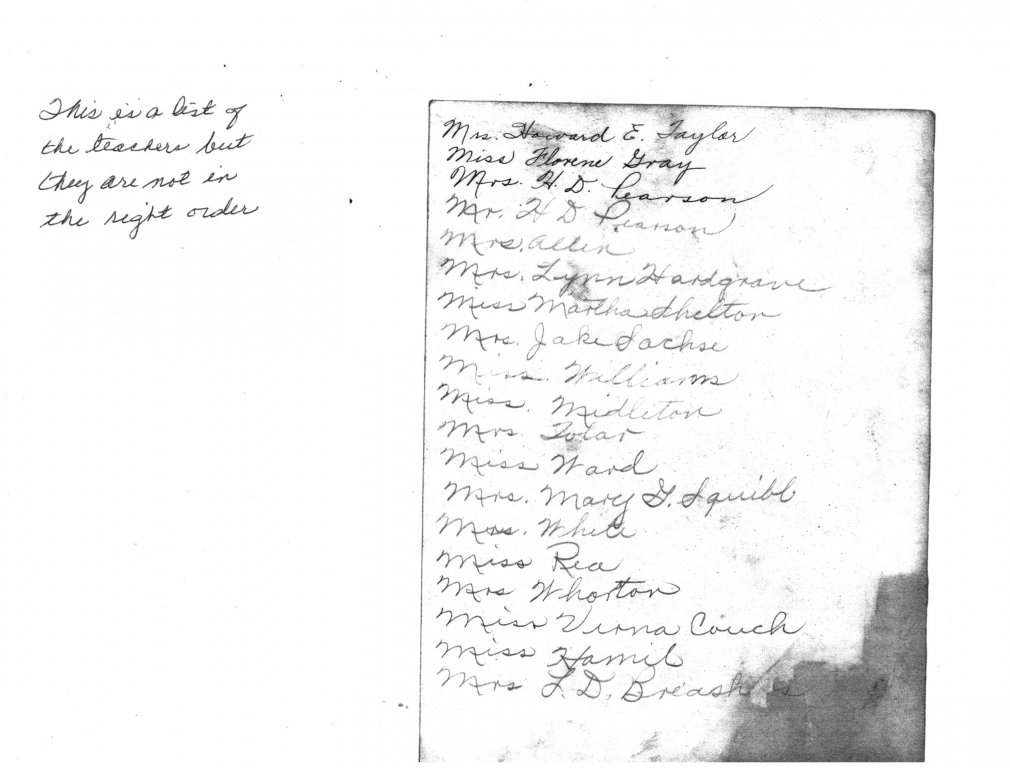 This is a list of
the teachers but
they are not in
the right order
Mrs. Howard E. Taylor
Miss Florene Gray
Mrs. H. D. Pearson
Mr. H D Pearson
Mrs. Allen
Mrs. Lynn Hardgrave
Miss Martha Shelton
Mrs. Jake Sachse
Miss. Williams
Miss. Midleton
Mrs. Tolar
Miss Ward
Mrs. Mary G. Squibb
Mrs. White
Miss Rea
Mrs Whorton
Miss Virna Couch
Miss Hamil
Mrs L. D.